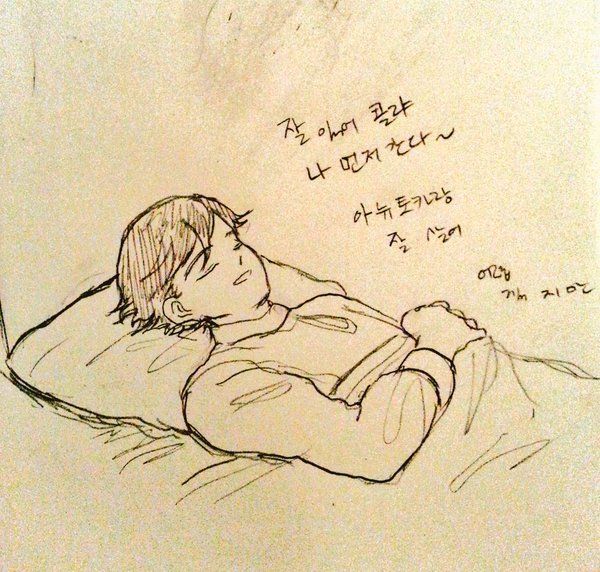 잘 있어 콜랴
나 먼저 간다~
아뉴토카랑
잘 살어
어렵
겠 지만